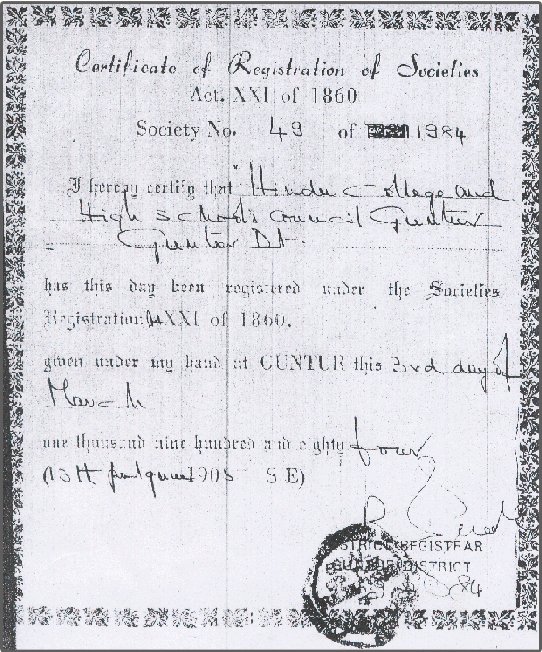 Certificate of Registration of Societies
Act. XXI of 1860
Society No. 49 of 1984
I hereby certify that "Hindu College and
High Schools Council Guntur
Guntur Dt.
has this day been registered under the Societies
Registration XXI of 1860.
given under my hand at GUNTUR this 3rd day of
March
one thousand nine hundred and eighty four
(13th 1905 S.E)
DISTRICT REGISTRAR
GUNTUR DISTRICT
84